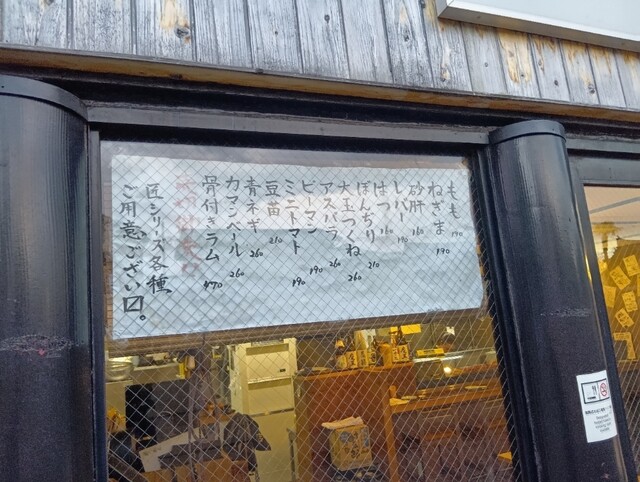 もも 190
ねぎま 190
砂肝 160
レバー 190
はつ 160
ぼんぢり 210
大玉つくね 260
アスパラ 260
ピーマン 190
ミニトマト 190
豆苗 210
青ネギ 260
カマンベール 260
骨付きラム 470
匠シリーズ各種
ご用意ござい〼。